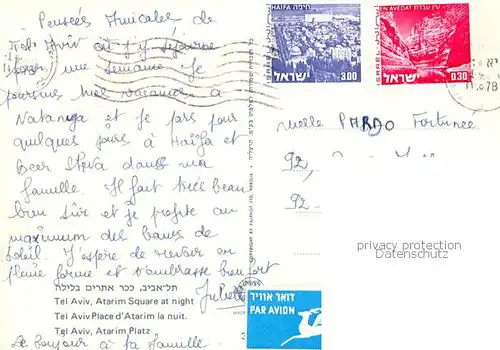 Pensées Amicales de
Tel Aviv où j'y séjourne
une semaine. Je
poursuis mes vacances à
Natanya et je pars pour
quelques jours à Haïfa et
Beer Sheva dans ma
famille. Il fait très beau
bien sûr et je profite au
maximum des bains de
soleil. J'espère de rentrer en
pleine forme et t'embrasse bien fort
Juliette
תל-אביב, ככר אתרים בלילה
Tel Aviv, Atarim Square at night
Tel Aviv Place d'Atarim la nuit.
Tel Aviv, Atarim Platz
Le bonjour à ta famille
HAIFA חיפה
3.00
ISRAEL
ישראל
EN AVEDAT עין עבדת
0.30
ISRAEL
ישראל
78
melle PARDO Fortunée
92,
92 -
privacy protection
Datenschutz
דואר אוויר
PAR AVION